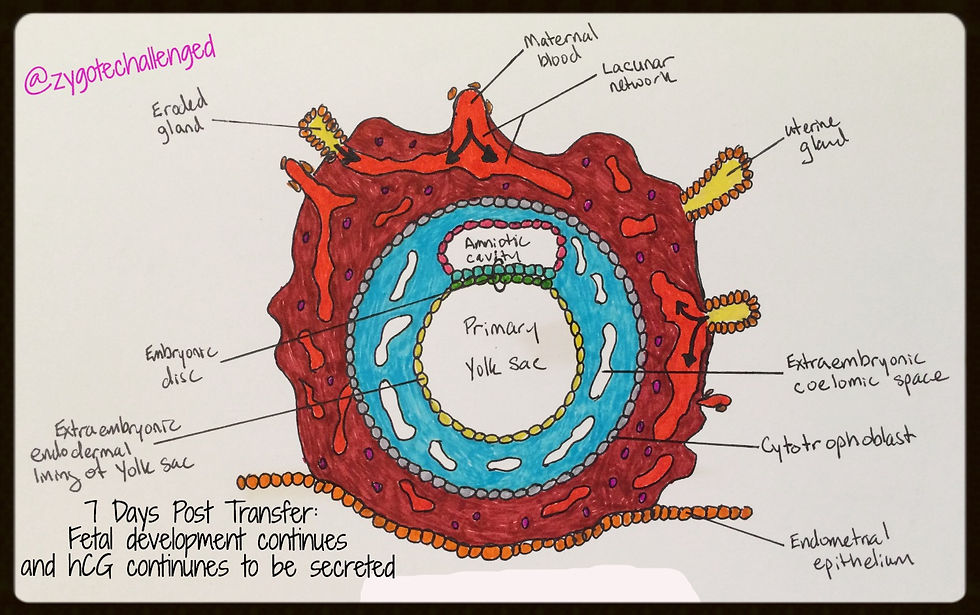 @zygotechallenged
Maternal
blood
Lacunar
network
Eroded
gland
uterine
gland
Amniotic
cavity
Primary
Yolk sac
Embryonic
disc
Extraembryonic
coelomic space
Extraembryonic
endodermal
lining of Yolk sac
Cytotrophoblast
7 Days Post Transfer:
Fetal development continues
and hCG continunes to be secreted
Endometrial
epithelium